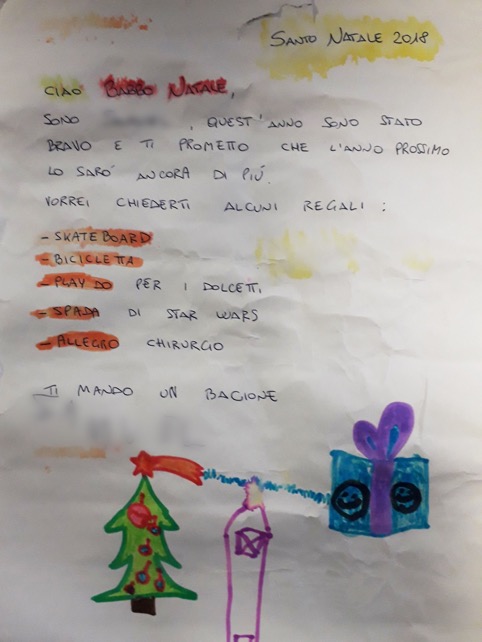 SANTO NATALE 2018
CIAO BABBO NATALE,
SONO , QUEST'ANNO SONO STATO
BRAVO E TI PROMETTO CHE L'ANNO PROSSIMO
LO SARO' ANCORA DI PIÚ.
VORREI CHIEDERTI ALCUNI REGALI :
- SKATEBOARD
- BICICLETTA
- PLAY DO PER I DOLCETTI
- SPADA DI STAR WARS
- ALLEGRO CHIRURGIO
TI MANDO UN BACIONE